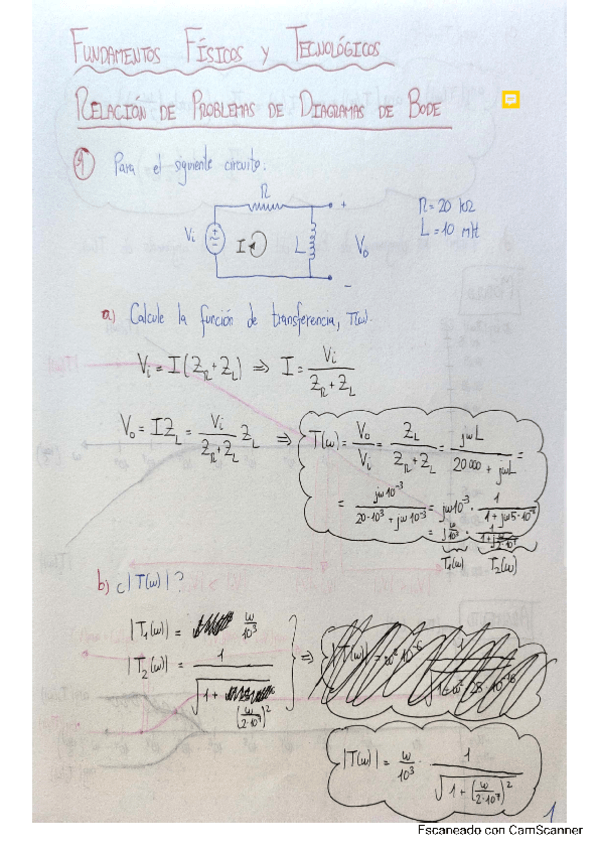 FUNDAMENTOS FÍSICOS Y TECNOLÓGICOS
RELACIÓN DE PROBLEMAS DE DIAGRAMAS DE BODE
Para el siguiente circuito.
R
+
Vi
I
L
Vo
-
R=20 kΩ
L=10 mH
a) Calcule la función de transferencia, T(ω).
Vi = I(Z_R+Z_L) ⇒ I = Vi / (Z_R+Z_L)
Vo = I Z_L = Vi / (Z_R+Z_L) Z_L ⇒ T(ω) = Vo / Vi = Z_L / (Z_R+Z_L) = jωL / (20000 + jωL) =
= jω10⁻³ / (20·10³ + jω10⁻³) = jω10⁻³ · 1 / (1+jω5·10⁻⁸)
= j ω/10³ · 1 / (1+j ω/(2·10⁷))
T₁(ω) T₂(ω)
b) ¿|T(ω)|?
|T₁(ω)| = ω/10³
|T₂(ω)| = 1 / √(1 + (ω/(2·10⁷))²)
⇒
|T(ω)| = ω/10³ · 1 / √(1 + (ω/(2·10⁷))²)
1
Escaneado con CamScanner